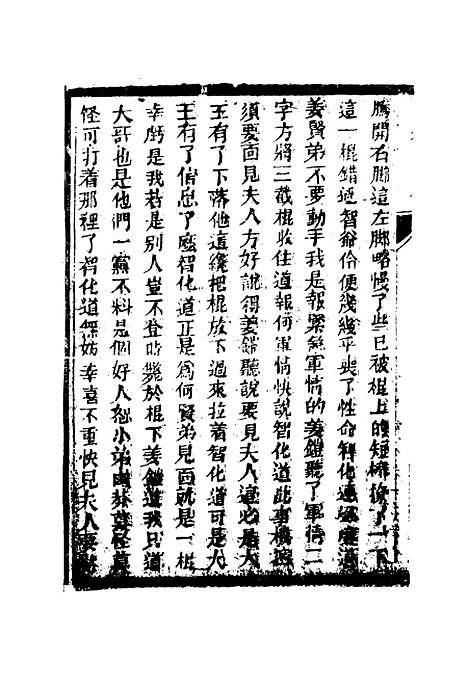 騰開右脚這左脚略慢了些已被棍上的短棒掃了一下
這一棍錯過智爺伶便幾幾乎喪了性命智化連連
姜賢弟不要動手我是報緊急軍情的姜鎧聽了軍情二
字方將三截棍收住道報何軍情快說智化道此事機密
須要面見夫人方好說得姜鎧聽說要見夫人這必是大
王有了下落他這纔把棍放下過來拉着智化道可是大
王有了信息了麽智化道正是爲何賢弟見面就是一棍
幸虧是我若是別人豈不登時斃於棍下姜鎧道我只道
大哥也是他們一黨不料是個好人恕小弟
怪可打着那裡了智化道無妨幸喜不重快見夫人要